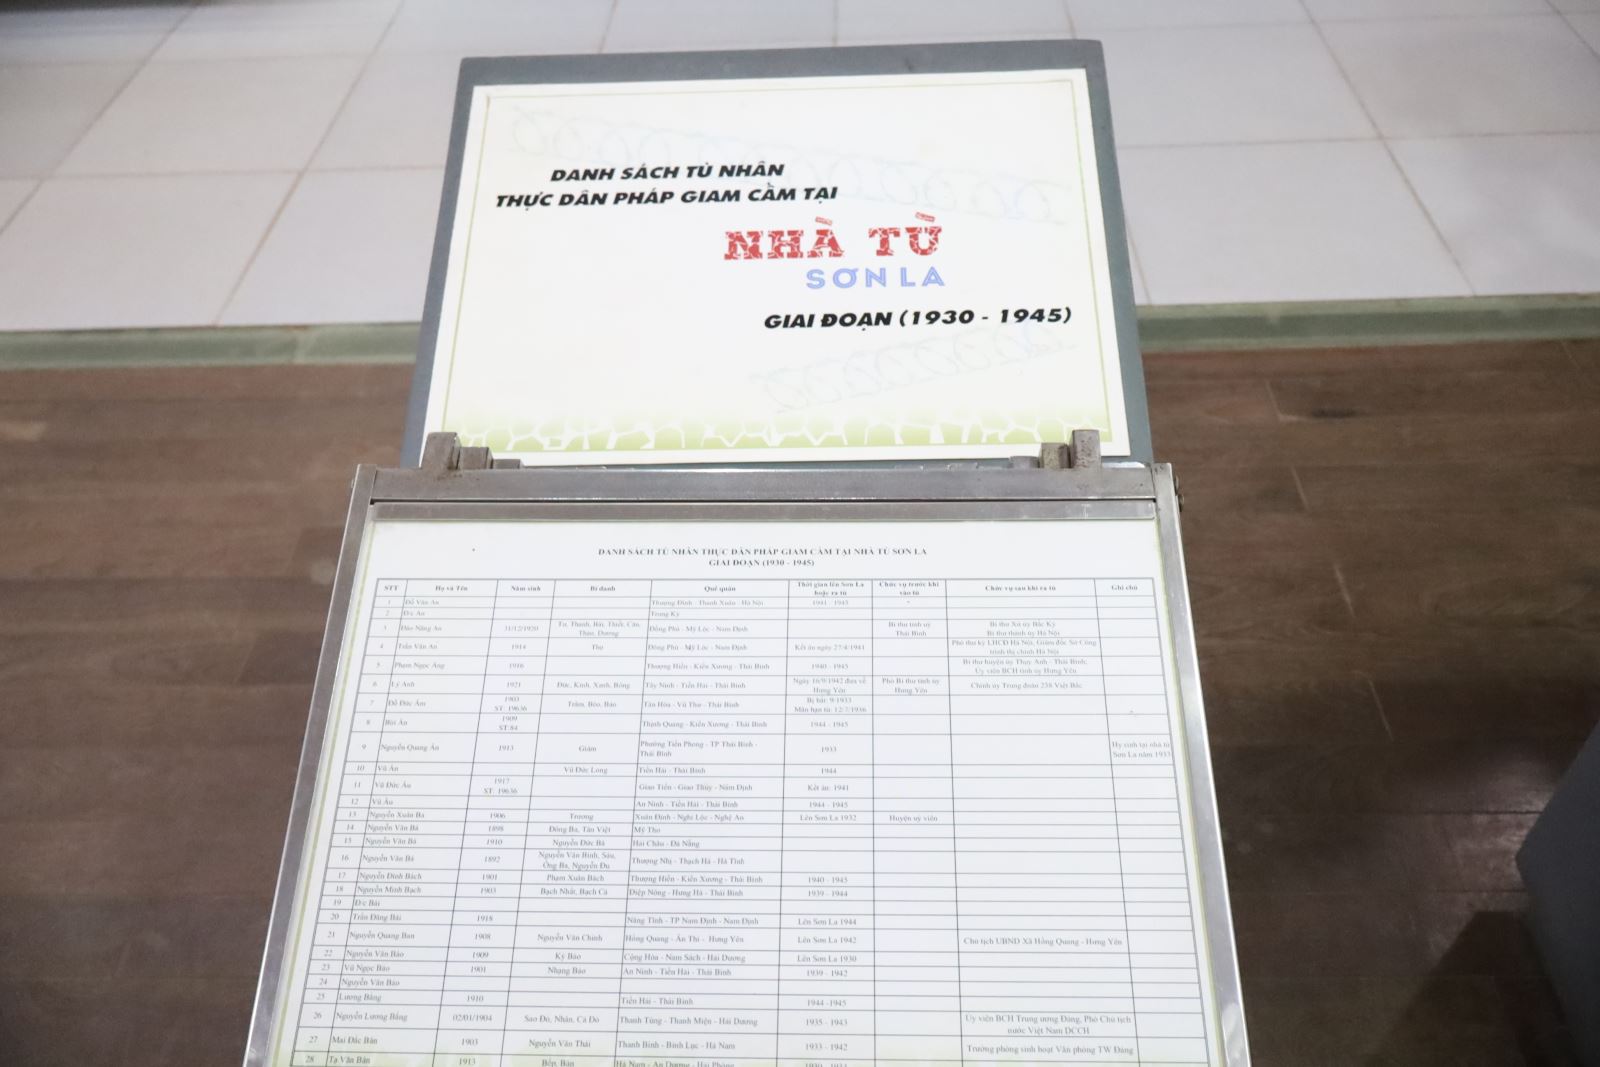 DANH SÁCH TÙ NHÂN
THỰC DÂN PHÁP GIAM CẦM TẠI
NHÀ TÙ
SƠN LA
GIAI ĐOẠN (1930 - 1945)
DANH SÁCH TÙ NHÂN THỰC DÂN PHÁP GIAM CẦM TẠI NHÀ TÙ SƠN LA
GIAI ĐOẠN (1930 - 1945)
STT Họ và Tên Năm sinh Bí danh Quê quán Thời gian lên Sơn La hoặc ra tù Chức vụ trước khi vào tù Chức vụ sau khi ra tù Ghi chú
1 Đỗ Văn An Thượng Đình - Thanh Xuân - Hà Nội 1941 - 1945
2 Đ/c An Trung Kỳ
3 Đào Năng An 31/12/1920 Tư, Thanh, Hải, Thiết, Căn, Thảo, Dương Đồng Phú - Mỹ Lộc - Nam Định Bí thư tỉnh ủy Thái Bình Bí thư Xứ ủy Bắc Kỳ Bí thư thành ủy Hà Nội
4 Trần Văn An 1914 Thụ Đồng Phú - Mỹ Lộc - Nam Định Kết án ngày 27/4/1941 Phó thư ký LHCĐ Hà Nội, Giám đốc Sở Công trình thị chính Hà Nội
5 Phạm Ngọc Ảng 1916 Thượng Hiền - Kiến Xương - Thái Bình 1940 - 1945 Bí thư huyện ủy Thụy Anh - Thái Bình, Ủy viên BCH tỉnh ủy Hưng Yên
6 Lý Anh 1921 Đức, Kính, Xanh, Bông Tây Ninh - Tiền Hải - Thái Bình Ngày 16/9/1942 đưa về Hưng Yên Phó Bí thư tỉnh ủy Hưng Yên Chính ủy Trung đoàn 238 Việt Bắc
7 Đỗ Đức Ấm 1903 ST: 19636 Trầm, Bèo, Bảo Tân Hòa - Vũ Thư - Thái Bình Bị bắt: 9/1933 Mãn hạn tù: 12/7/1936
8 Bùi Ân 1909 ST 84 Thịnh Quang - Kiến Xương - Thái Bình 1944 - 1945
9 Nguyễn Quang Ân 1913 Giám Phường Tiền Phong - TP Thái Bình - Thái Bình 1933 Hy sinh tại nhà tù Sơn La năm 1933
10 Vũ Ân Vũ Đức Long Tiền Hải - Thái Bình 1944
11 Vũ Đức Âu 1917 ST: 19636 Giao Tiến - Giao Thủy - Nam Định Kết án: 1941
12 Vũ Âu An Ninh - Tiền Hải - Thái Bình 1944 - 1945
13 Nguyễn Xuân Ba 1906 Trương Xuân Đình - Nghi Lộc - Nghệ An Lên Sơn La 1932 Huyện uỷ viên
14 Nguyễn Văn Bá 1898 Đông Ba, Tân Việt Mỹ Tho
15 Nguyễn Văn Bá 1910 Nguyễn Đức Bá Hải Châu - Đà Nẵng
16 Nguyễn Văn Bá 1892 Nguyễn Văn Bính, Sáu, Ông Ba, Nguyễn Du Thượng Nhị - Thạch Hà - Hà Tĩnh
17 Nguyễn Đình Bách 1901 Phạm Xuân Bách Thượng Hiền - Kiến Xương - Thái Bình 1940 - 1945
18 Nguyễn Minh Bạch 1903 Bạch Nhất, Bạch Cả Điệp Nông - Hưng Hà - Thái Bình 1939 - 1944
19 Đ/c Bái
20 Trần Đăng Bái 1918 Năng Tĩnh - TP Nam Định - Nam Định Lên Sơn La 1944
21 Nguyễn Quang Ban 1908 Nguyễn Văn Chính Hồng Quang - Ân Thi - Hưng Yên Lên Sơn La 1942 Chủ tịch UBND Xã Hồng Quang - Hưng Yên
22 Nguyễn Văn Bảo 1909 Ký Bảo Cộng Hòa - Nam Sách - Hải Dương Lên Sơn La 1930
23 Vũ Ngọc Bảo 1901 Nhạng Bảo An Ninh - Tiền Hải - Thái Bình 1939 - 1942
24 Nguyễn Văn Bảo
25 Lương Bằng 1910 Tiền Hải - Thái Bình 1944 -1945
26 Nguyễn Lương Bằng 02/01/1904 Sao Đỏ, Nhân, Cả Đỏ Thanh Tùng - Thanh Miện - Hải Dương 1935 - 1943 Ủy viên BCH Trung ương Đảng, Phó Chủ tịch nước Việt Nam DCCH
27 Mai Đắc Bân 1903 Nguyễn Văn Thái Thanh Bình - Bình Lục - Hà Nam 1933 - 1942 Trưởng phòng sinh hoạt Văn phòng TW Đảng
28 Tạ Văn Bân 1913 Bếp, Bân Hà Nam - An Dương - Hải Phòng